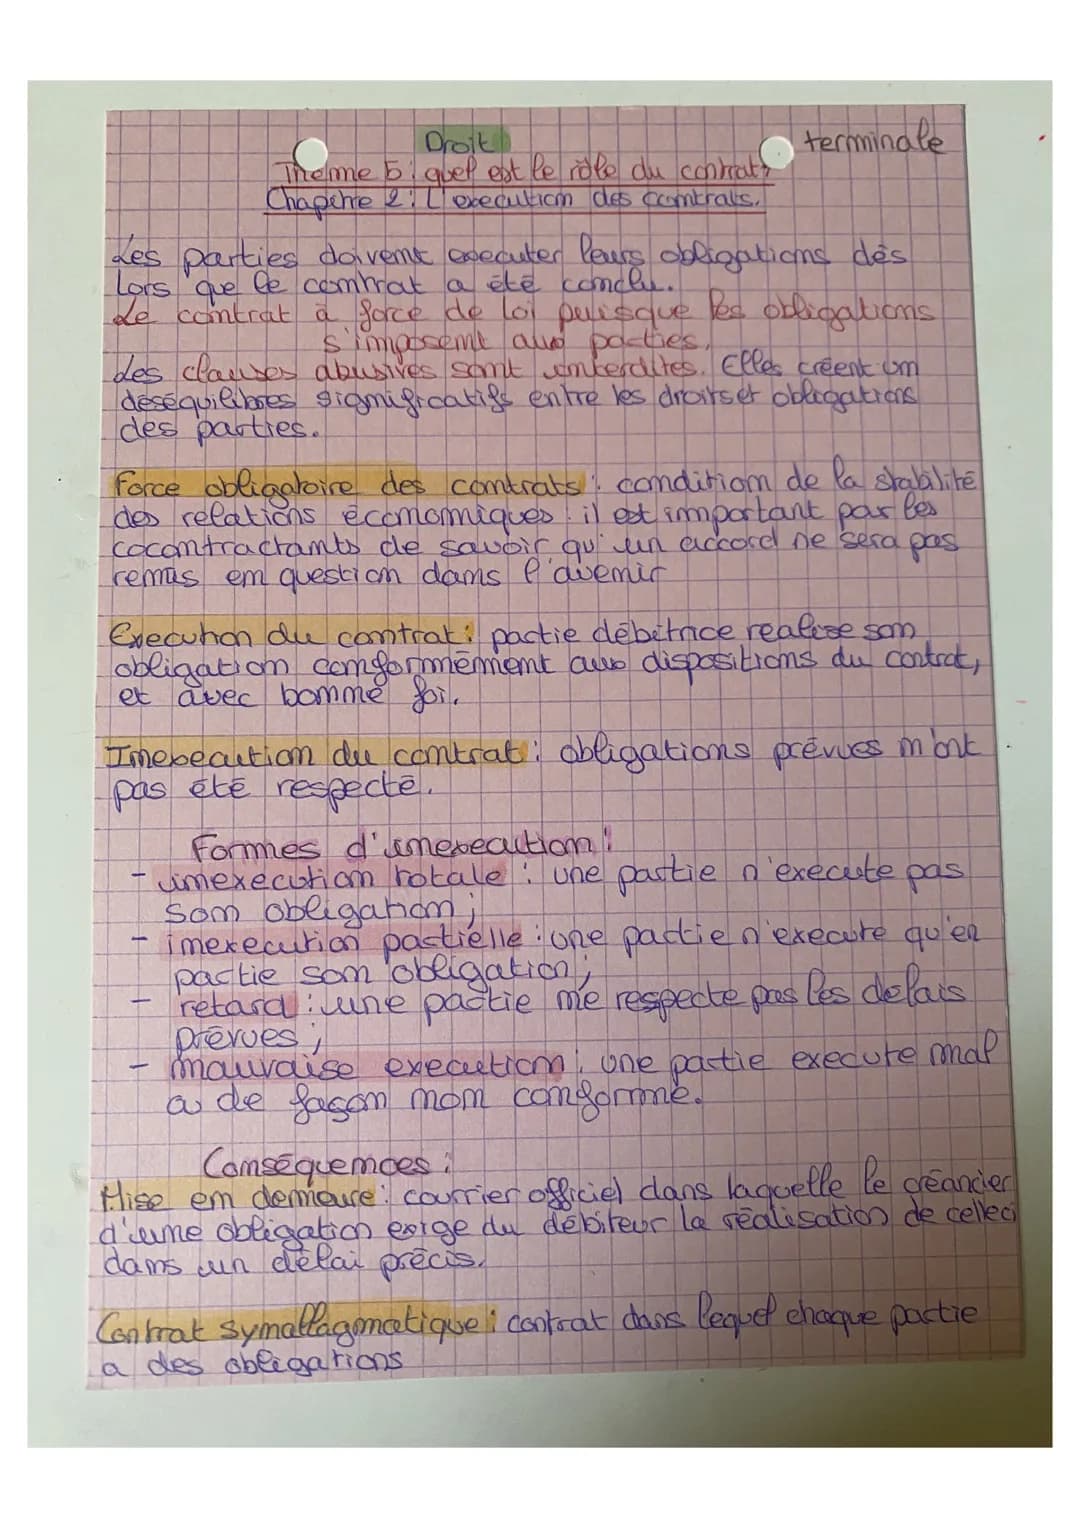 Droit
terminale
Thème 5 : quel est le rôle du contrat ?
Chapitre 2 : L'execution des contrats.
Les parties doivent executer leurs obligations dès
Lors que le contrat a été conclu.
Le contrat à force de loi puisque les obligations
s'imposent aux parties.
Les clauses abusives sont interdites. Elles créent un
déséquilibres significatifs entre les droits et obligations
des parties.
Force obligatoire des contrats : condition de la stabilité
des relations économiques : il est important par les
cocontractants de savoir qu'un accord ne sera pas
remis en question dans l'avenir
Execution du contrat : partie débitrice realise son
obligation conformmément aux dispositions du contrat,
et avec bonne foi.
Inexecution du contrat : obligations prévues n'ont
pas été respecté.
Formes d'inexecution :
- inexecution totale : une partie n'execute pas
son obligation ;
- inexecution partielle : une partie n'execute qu'en
partie son obligation ;
- retard : une partie ne respecte pas les delais
prévues ;
- mauvaise execution : une partie execute mal
a de façon non conforme.
Conséquences :
Mise en demeure : courrier officiel dans laquelle le créancier
d'une obligation exige du débiteur la réalisation de celleci
dans un délai précis.
Contrat symallagmatique : contrat dans lequel chaque partie
a des obligations